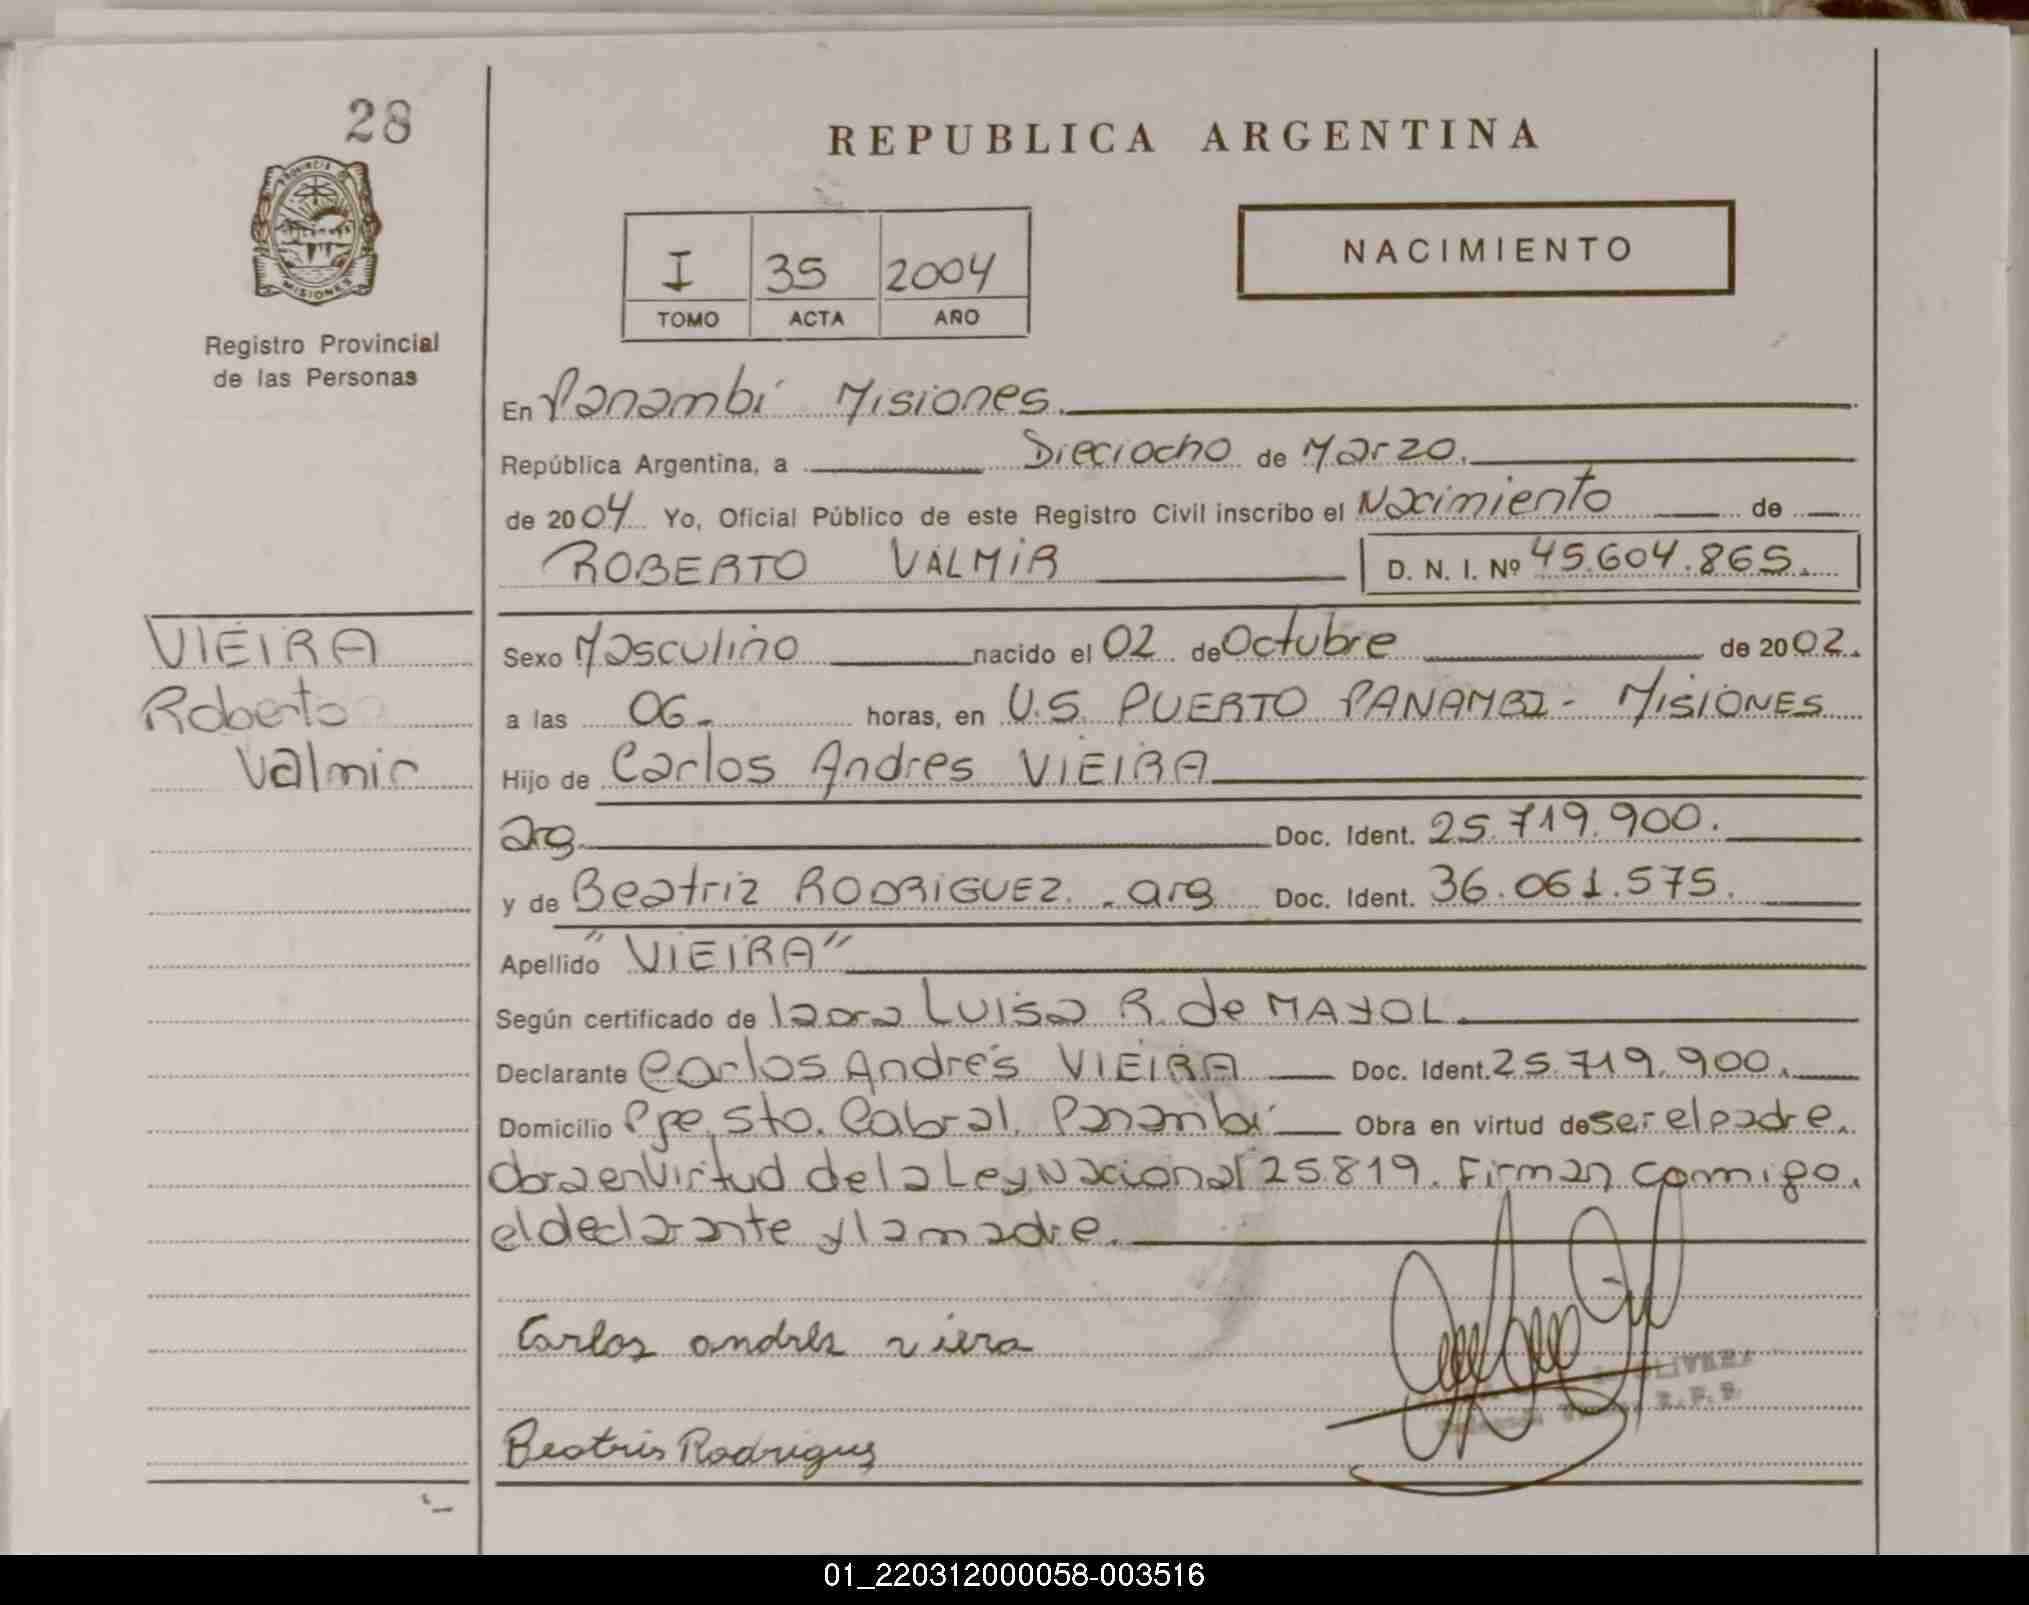 28
PROVINCIA DE
MISIONES
Registro Provincial
de las Personas
REPUBLICA ARGENTINA
I 35 2004
TOMO ACTA AÑO
NACIMIENTO
En Panambí Misiones.
República Argentina, a Dieciocho de Marzo.
de 2004 Yo, Oficial Público de este Registro Civil inscribo el Nacimiento de
ROBERTO VALMIR D. N. I. Nº 45.604.865.
VIEIRA
Roberto
Valmir
Sexo Masculino nacido el 02 de Octubre de 2002.
a las 06. horas, en U.S. PUERTO PANAMBI - MISIONES
Hijo de Carlos Andres VIEIRA
arg. Doc. Ident. 25.719.900.
y de Beatriz RODRIGUEZ. arg Doc. Ident. 36.061.575.
Apellido "VIEIRA"
Según certificado de Luisa R. de MAYOL.
Declarante Carlos Andrés VIEIRA Doc. Ident. 25.719.900.
Domicilio Pje. Sto. Cabral. Panambí Obra en virtud de ser el padre.
obra en virtud de la Ley Nacional 25.819. Firman conmigo.
el declarante y la madre.
Carlos andres viera
Beatris Rodrigus
OLIVERA
R.P.P.
01_220312000058-003516